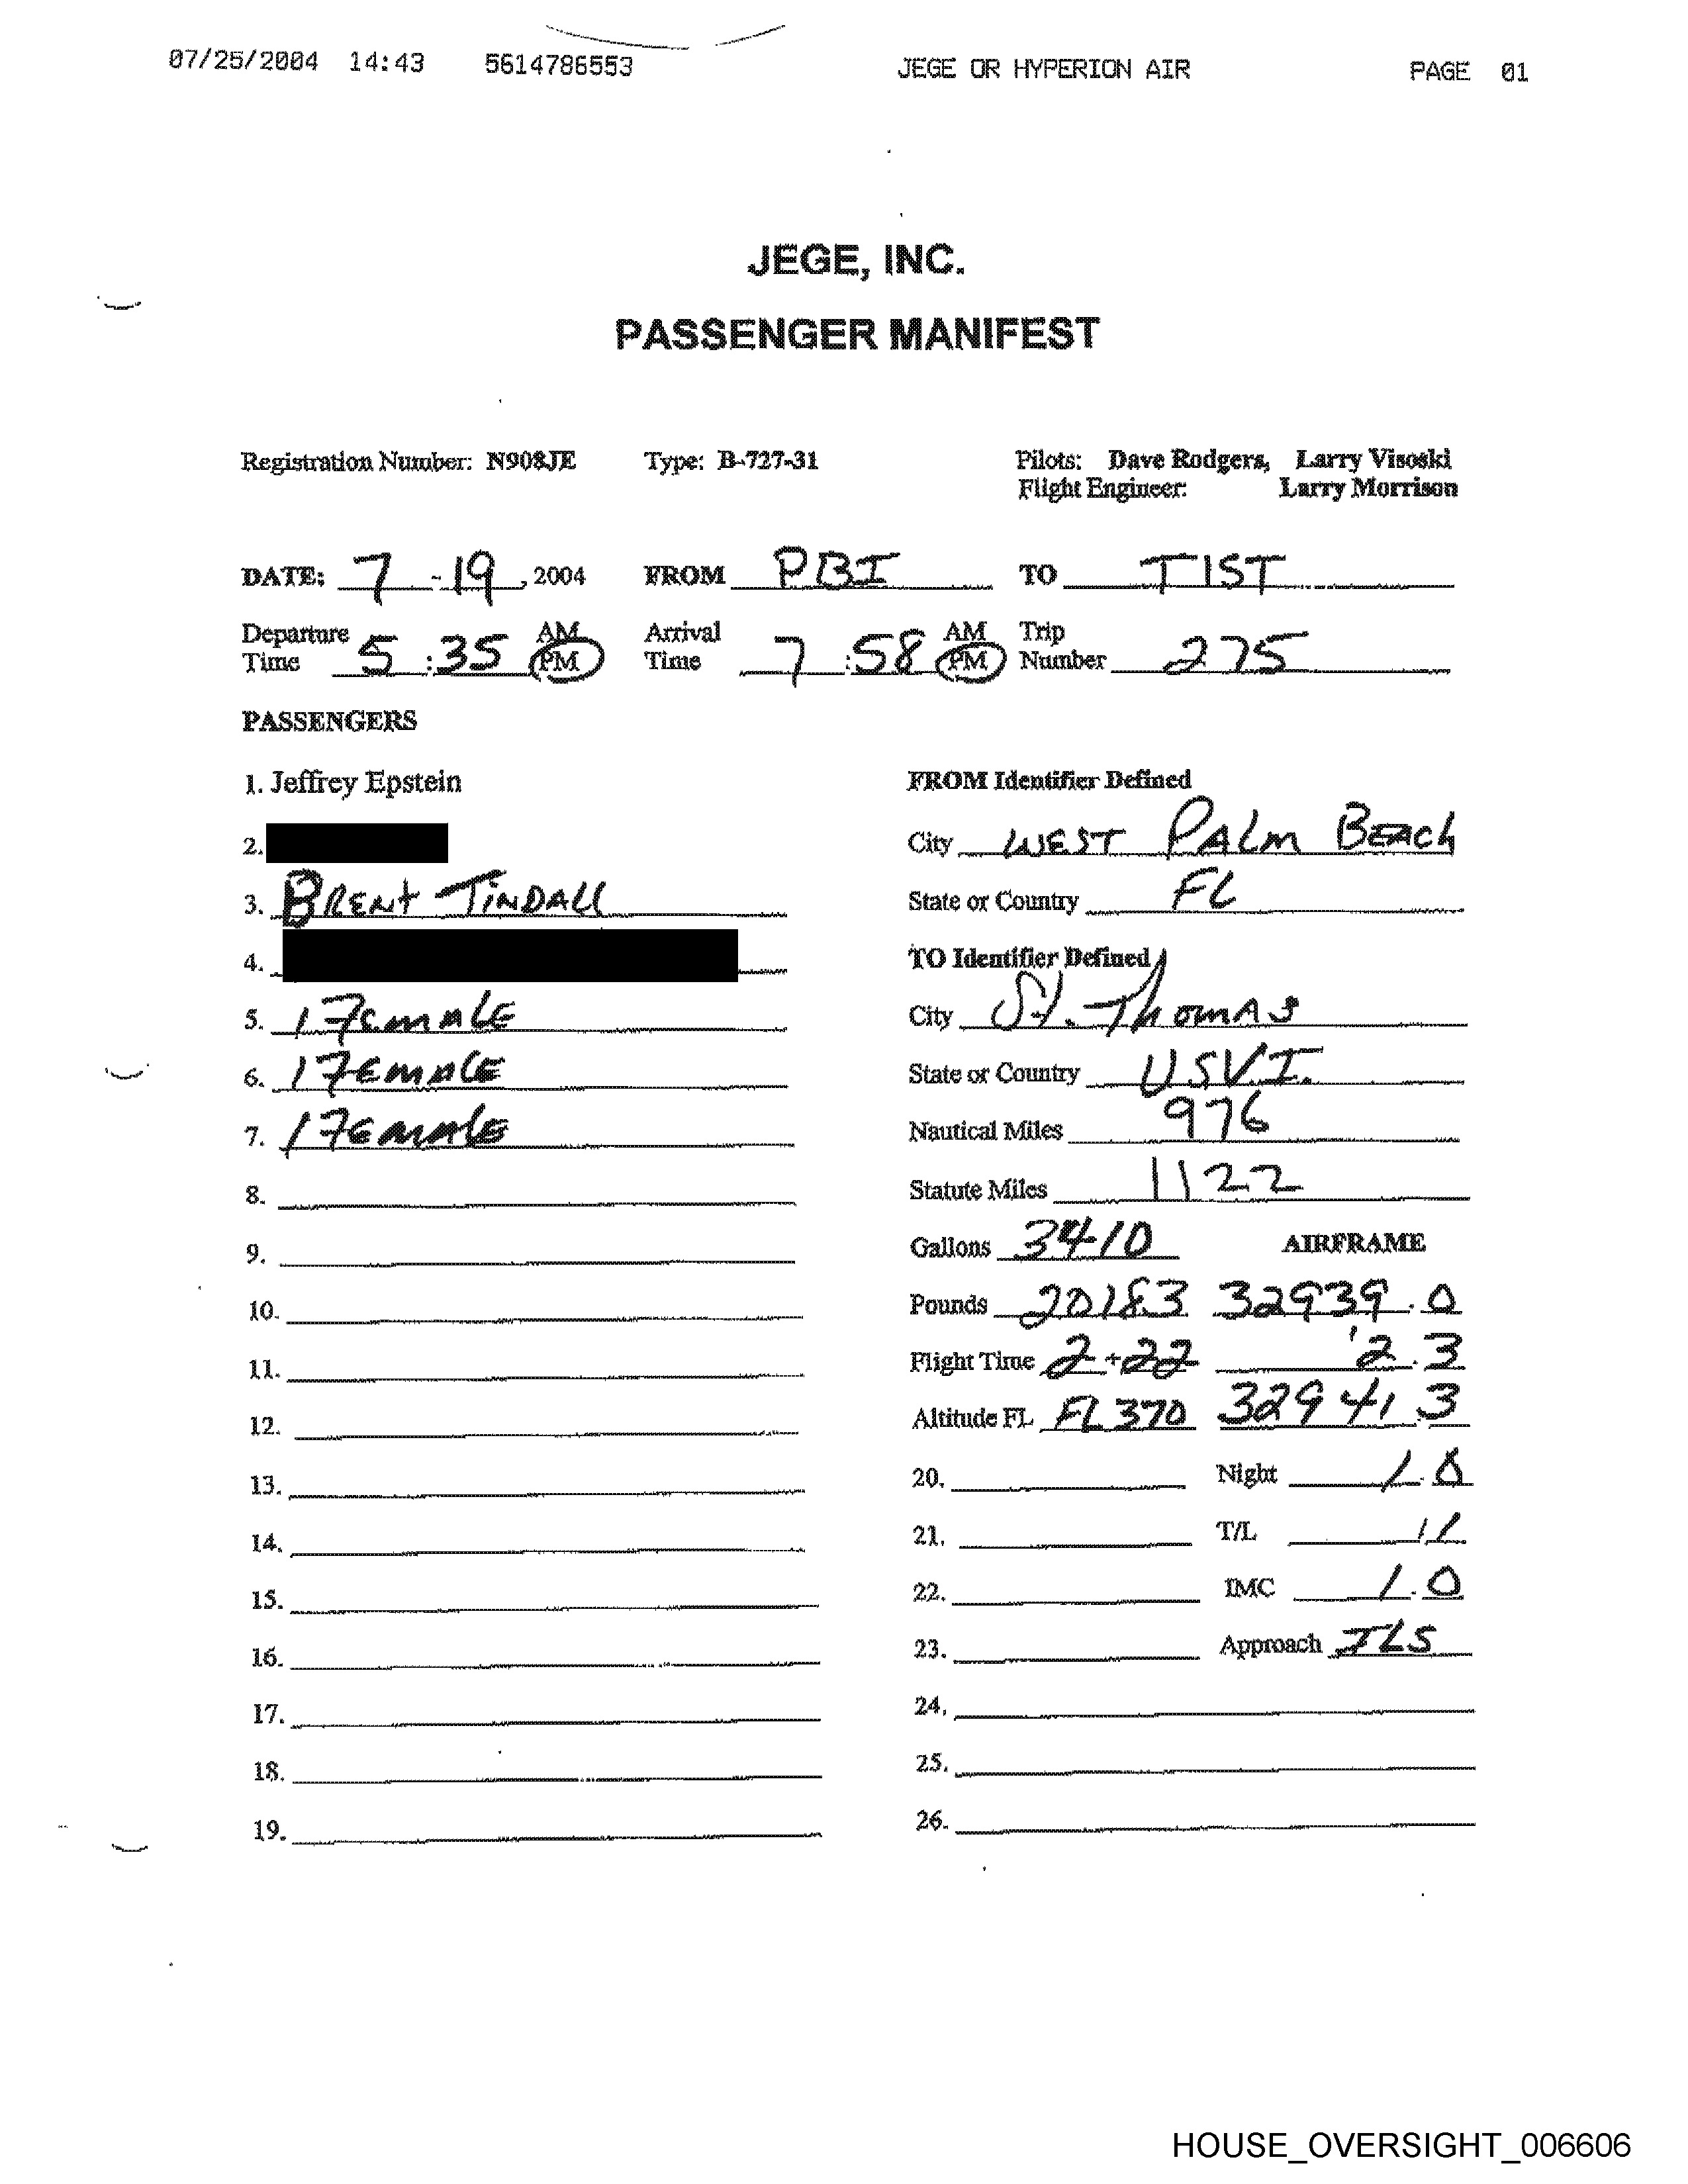 07/25/2004 14:43 5614786553 JEGE OR HYPERION AIR PAGE 01
JEGE, INC.
PASSENGER MANIFEST
Registration Number: N908JE Type: B-727-31 Pilots: Dave Rodgers, Larry Visoski
Flight Engineer: Larry Morrison
DATE: 7 - 19, 2004 FROM PBI TO TIST
Departure Time 5:35 AM PM Arrival Time 7:58 AM PM Trip Number 275
PASSENGERS
1. Jeffrey Epstein
2.
3. BRENT TINDALL
4.
5. 1 FEMALE
6. 1 FEMALE
7. 1 FEMALE
8.
9.
10.
11.
12.
13.
14.
15.
16.
17.
18.
19.
FROM Identifier Defined
City WEST PALM BEACH
State or Country FL
TO Identifier Defined
City St. Thomas
State or Country USVI.
Nautical Miles 976
Statute Miles 1122
Gallons 3410 AIRFRAME
Pounds 20183 32939.0
Flight Time 2+22 2.3
Altitude FL FL370 32941.3
20. Night 1.0
21. T/L
22. IMC 1.0
23. Approach ILS
24.
25.
26.
HOUSE_OVERSIGHT_006606